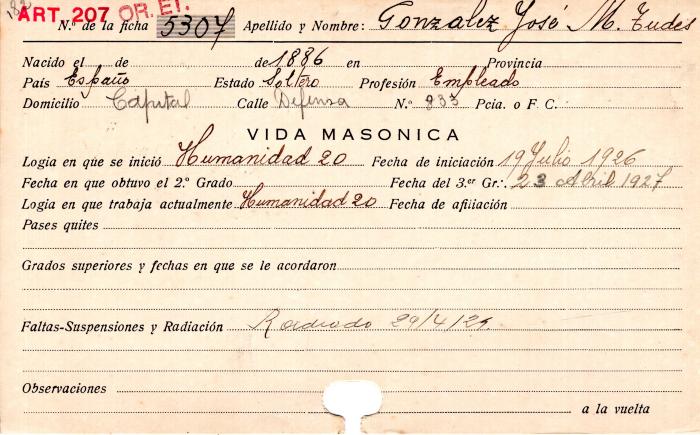 ART. 207 OR. ET.
N.º de la ficha 5307 Apellido y Nombre: Gonzalez José M. Tudes
Nacido el de de 1886 en Provincia
País España Estado Soltero Profesión Empleado
Domicilio Capital Calle Defensa N.º 833 Pcia. o F. C.
VIDA MASONICA
Logia en que se inició Humanidad 20 Fecha de iniciación 19 Julio 1926
Fecha en que obtuvo el 2.º Grado Fecha del 3.er Gr∴ 23 Abril 1927
Logia en que trabaja actualmente Humanidad 20 Fecha de afiliación
Pases quites
Grados superiores y fechas en que se le acordaron
Faltas-Suspensiones y Radiación Radiado 29/4/29
Observaciones
a la vuelta